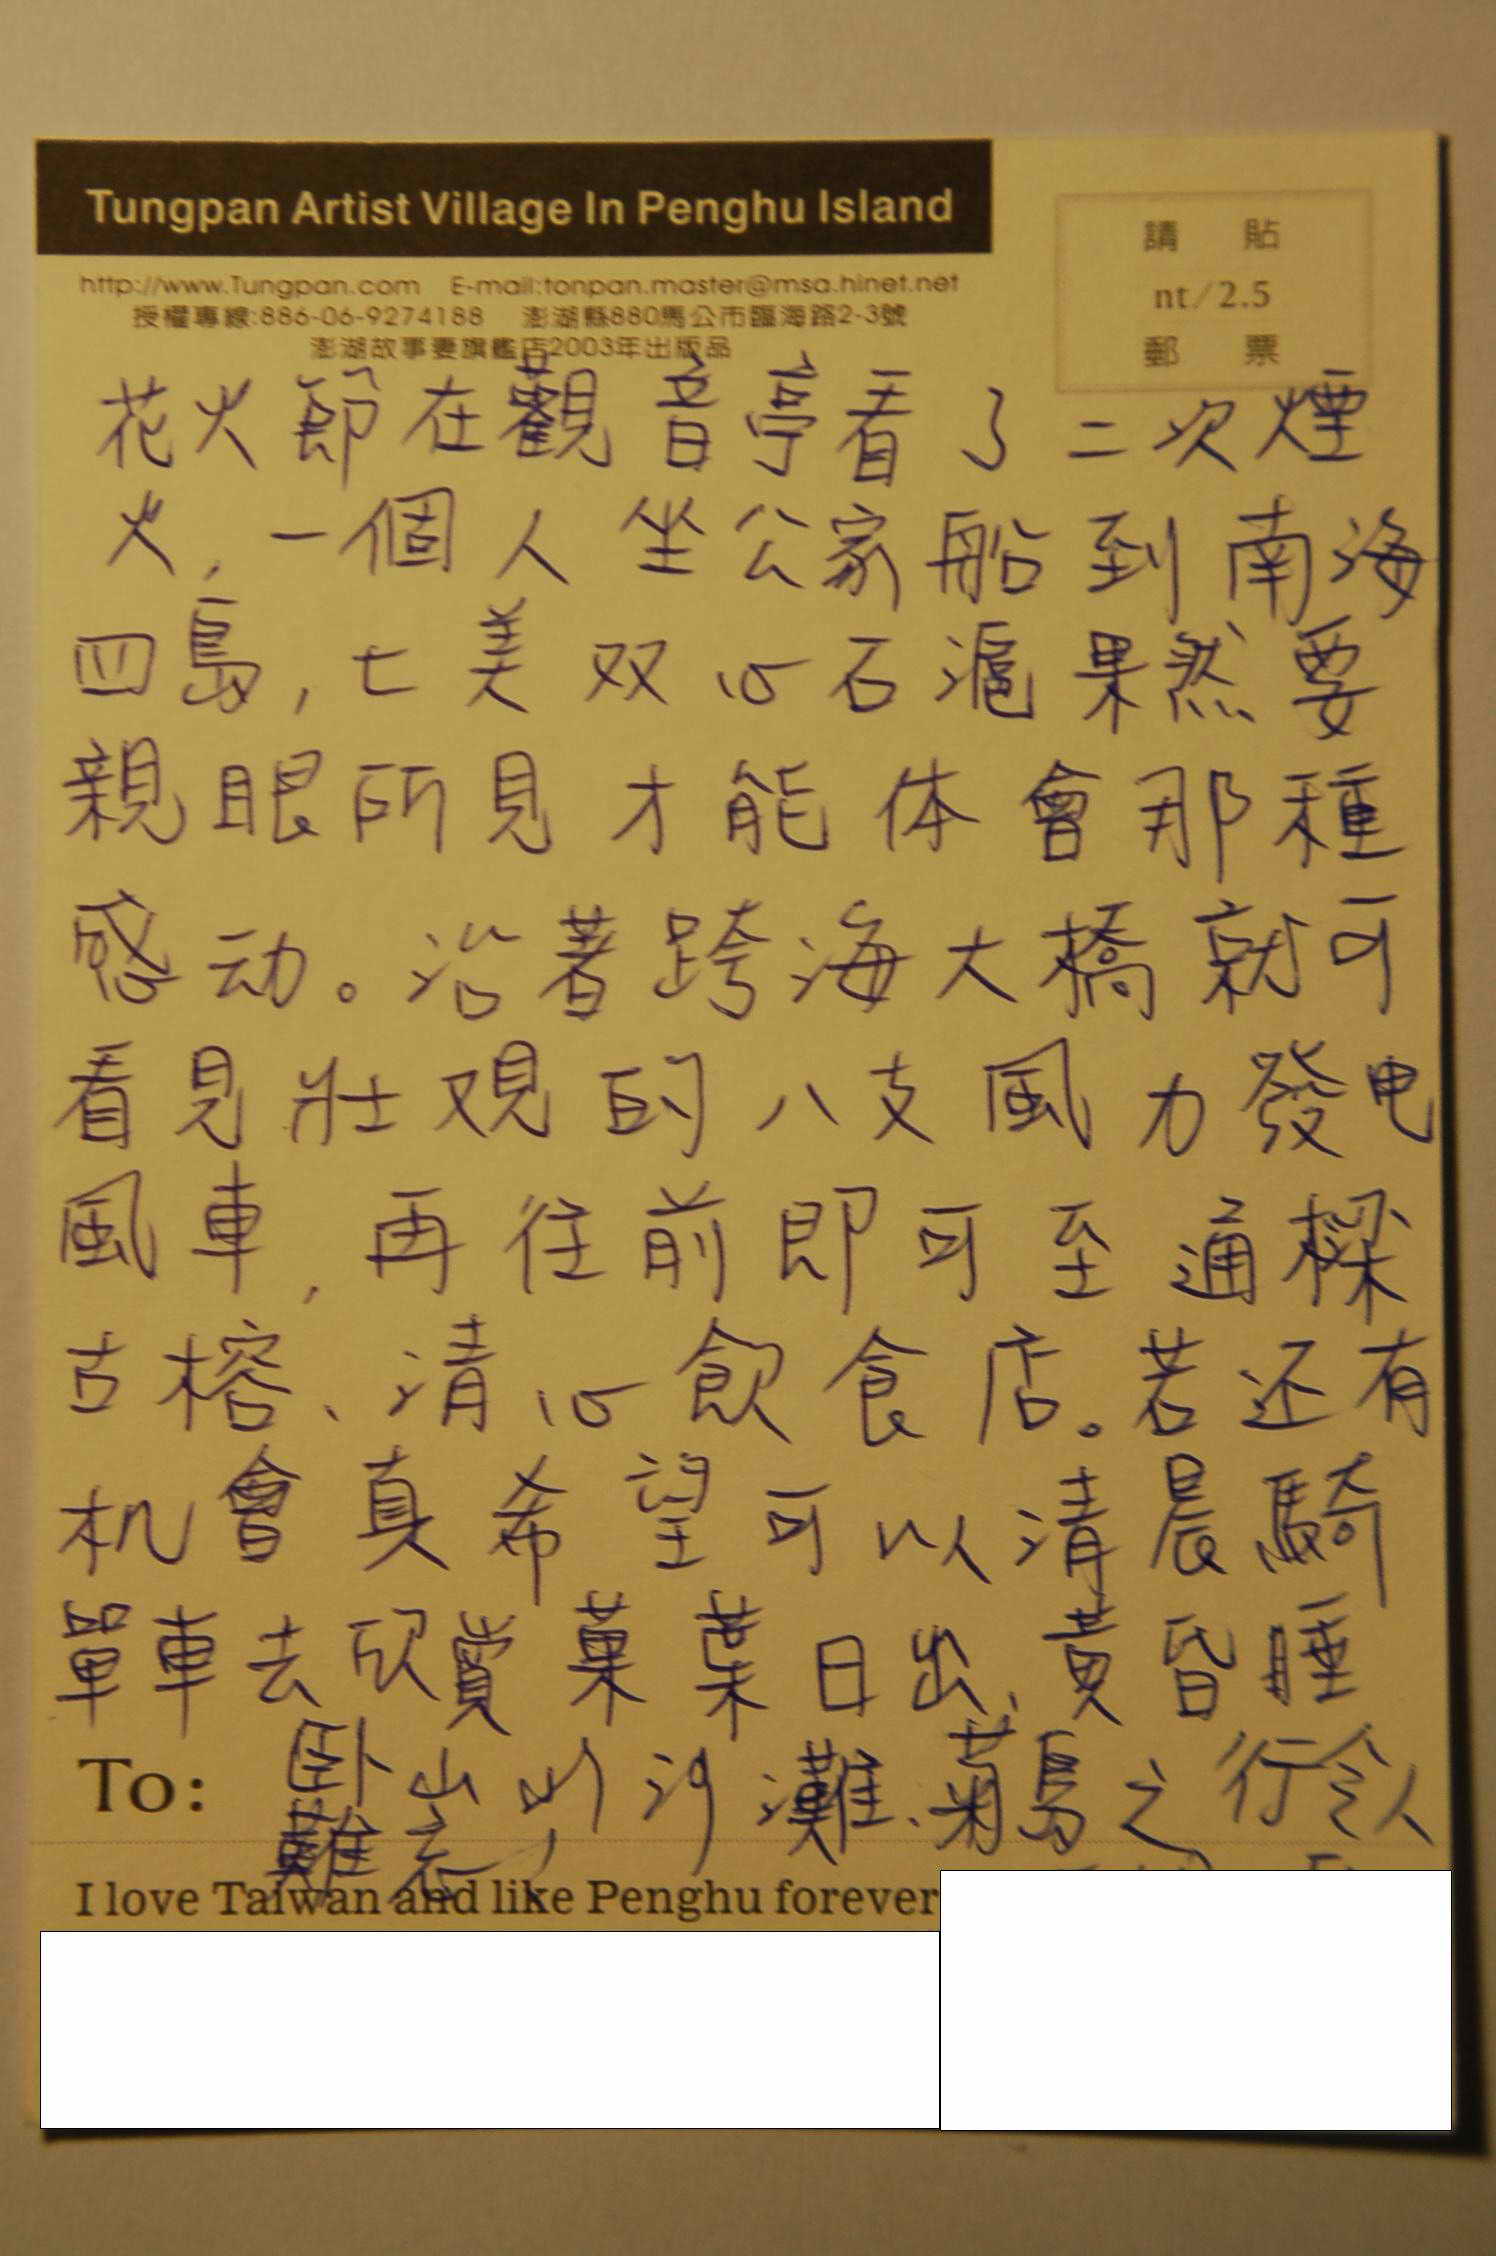 Tungpan Artist Village In Penghu Island
請 貼
nt/2.5
郵 票
http://www.Tungpan.com E-mail:tonpan.master@msa.hinet.net
授權專線:886-06-9274188 澎湖縣880馬公市臨海路2-3號
澎湖故事妻旗艦店2003年出版品
花火節在觀音亭看了二次煙
火,一個人坐公家船到南海
四島,七美双心石滬果然要
親眼所見才能体會那種
感动。沿著跨海大橋就可
看見壯观的八支風力發电
風車,再往前即可至通樑
古榕、清心飲食店。若还有
机會真希望可以清晨騎
單車去欣賞菓葉日出、黃昏睡
To:
卧山水沙灘、菊島之行令人
難忘,
I love Taiwan and like Penghu forever